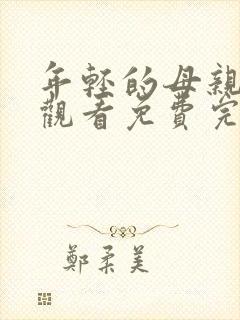 年轻的母親
觀看免費完
鄭柔美